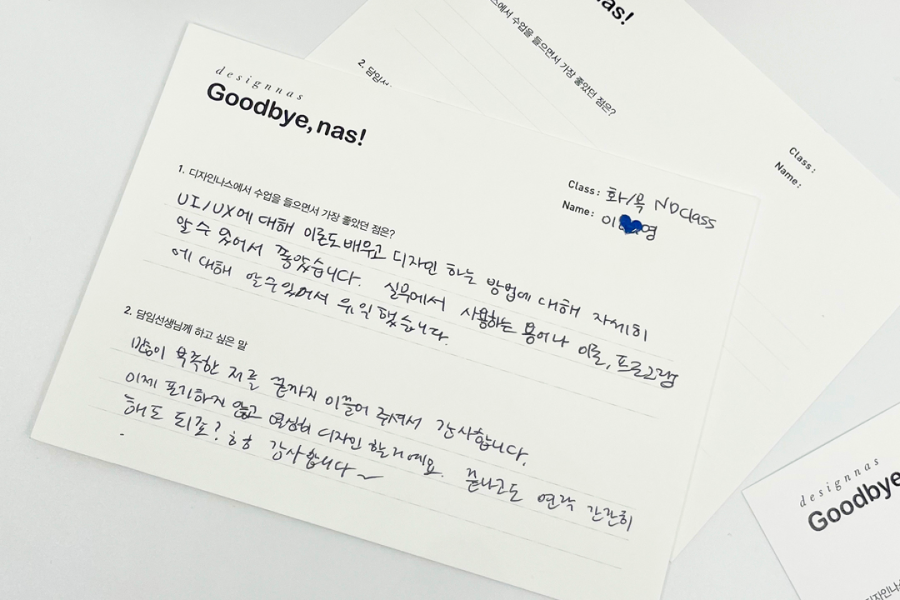 designnas
Goodbye, nas!
Class: 화/목 ND class
Name: 이 영
1. 디자인나스에서 수업을 들으면서 가장 좋았던 점은?
UI/UX에 대해 이론도 배우고 디자인 하는 방법에 대해 자세히
알 수 있어서 좋았습니다. 실무에서 사용하는 용어나 이론, 프로그램
에 대해 알 수 있어서 유익했습니다.
2. 담임선생님께 하고 싶은 말
많이 부족한 저를 끝까지 이끌어 주셔서 감사합니다.
이제 포기하지 않고 열심히 디자인 할거예요. 끝나고도 연락 간간히
해도 되죠? ㅎㅎ 감사합니다~
nas!
스에서 수업을 들으면서 가장 좋았던 점은?
2. 담임선
Class:
Name:
designnas
Goodbye
디자인나스